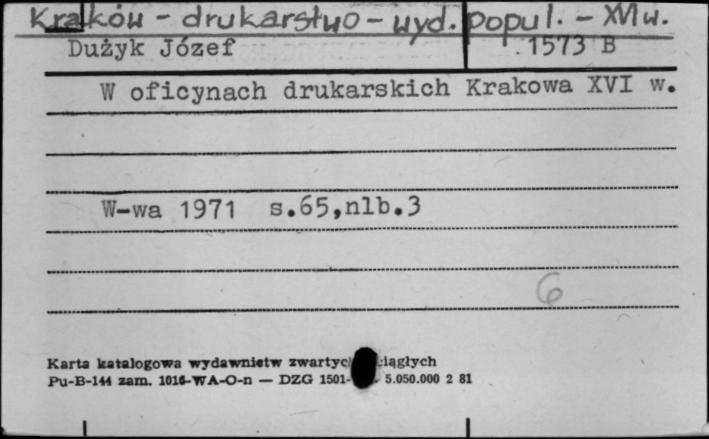 Kraków - drukarstwo - wyd. popul. - XVI w.
Dużyk Józef 1573 B
W oficynach drukarskich Krakowa XVI w.
W-wa 1971 s.65,nlb.3
6
Karta katalogowa wydawnictw
Pu-B-144 zam. 1016-WA-O-n — DZG 1501- 5.050.000 2 81